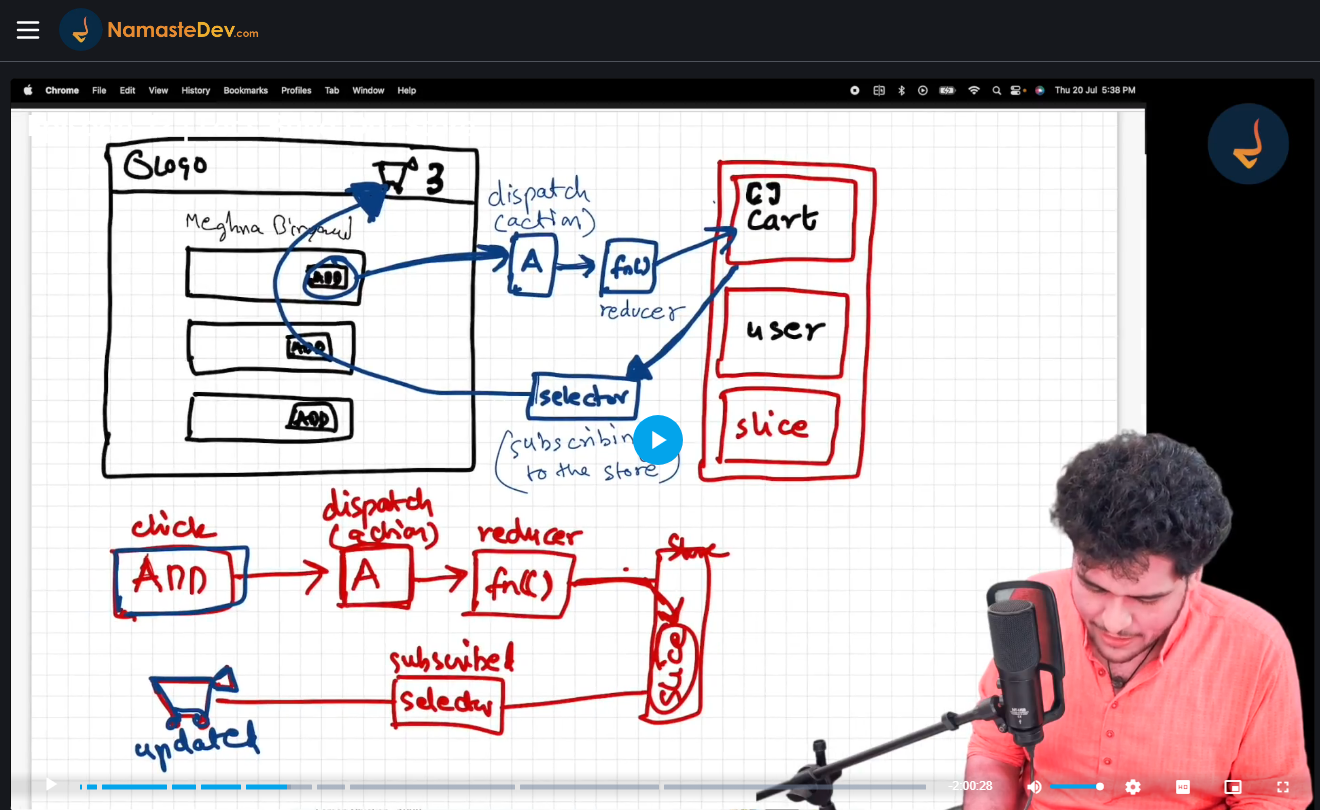 NamasteDev.com
Chrome File Edit View History Bookmarks Profiles Tab Window Help
Thu 20 Jul 5:38 PM
Logo
3
Meghna
ADD
ADD
ADD
dispatch
(action)
A
fn()
reducer
selector
(subscribin
to the store)
Cart
user
slice
click
ADD
dispatch
(action)
A
reducer
fn()
Store
slice
subscribed
selector
updated
-2:00:28
HD